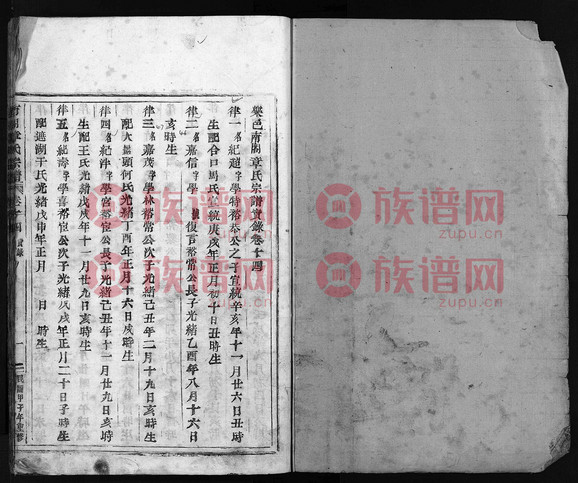 樂邑南閣章氏宗譜實錄卷十四
律一 名紀廷 字學特裕恭公之子宣統辛亥年十一月廿六日丑時
生配合口周氏宣統庚戌年正月初十日丑時生
律二 名嘉信 字學 號復言裕常公長子光緒乙酉年八月十六日
亥時生
律三 名嘉茂 字學林裕常公次子光緒己丑年二月十九日亥時生
配大 頭何氏光緒丁酉年正月十六日戌時生
律四 名紀 字學富裕宦公長子光緒己丑年十一月廿九日亥時
生配王氏光緒戊戌年十一月廿九日亥時生
律五 名紀 字學喜裕宦公次子光緒戊戌年正月二十日子時生
配 于氏光緒戊申年正月 日 時生
章氏宗譜 卷十四 實錄 一
民國甲子年重修
族谱网
zupu.cn
族谱网
zupu.cn
族谱网
zupu.cn
族谱网
zupu.cn